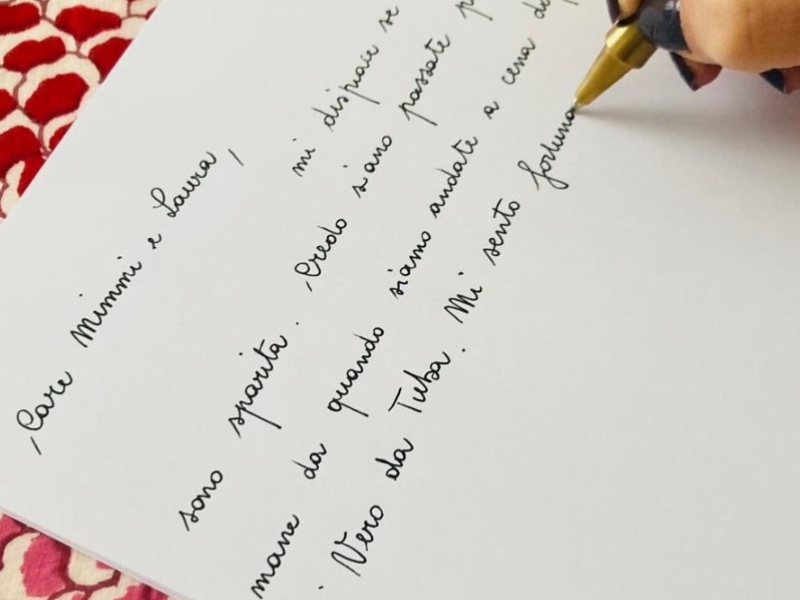 Care Mimmi e Laura,
mi dispiace se
sono sparita. Credo siano passate
mane da quando siamo andate a cena
Vero da Tuba. Mi sento fortuna